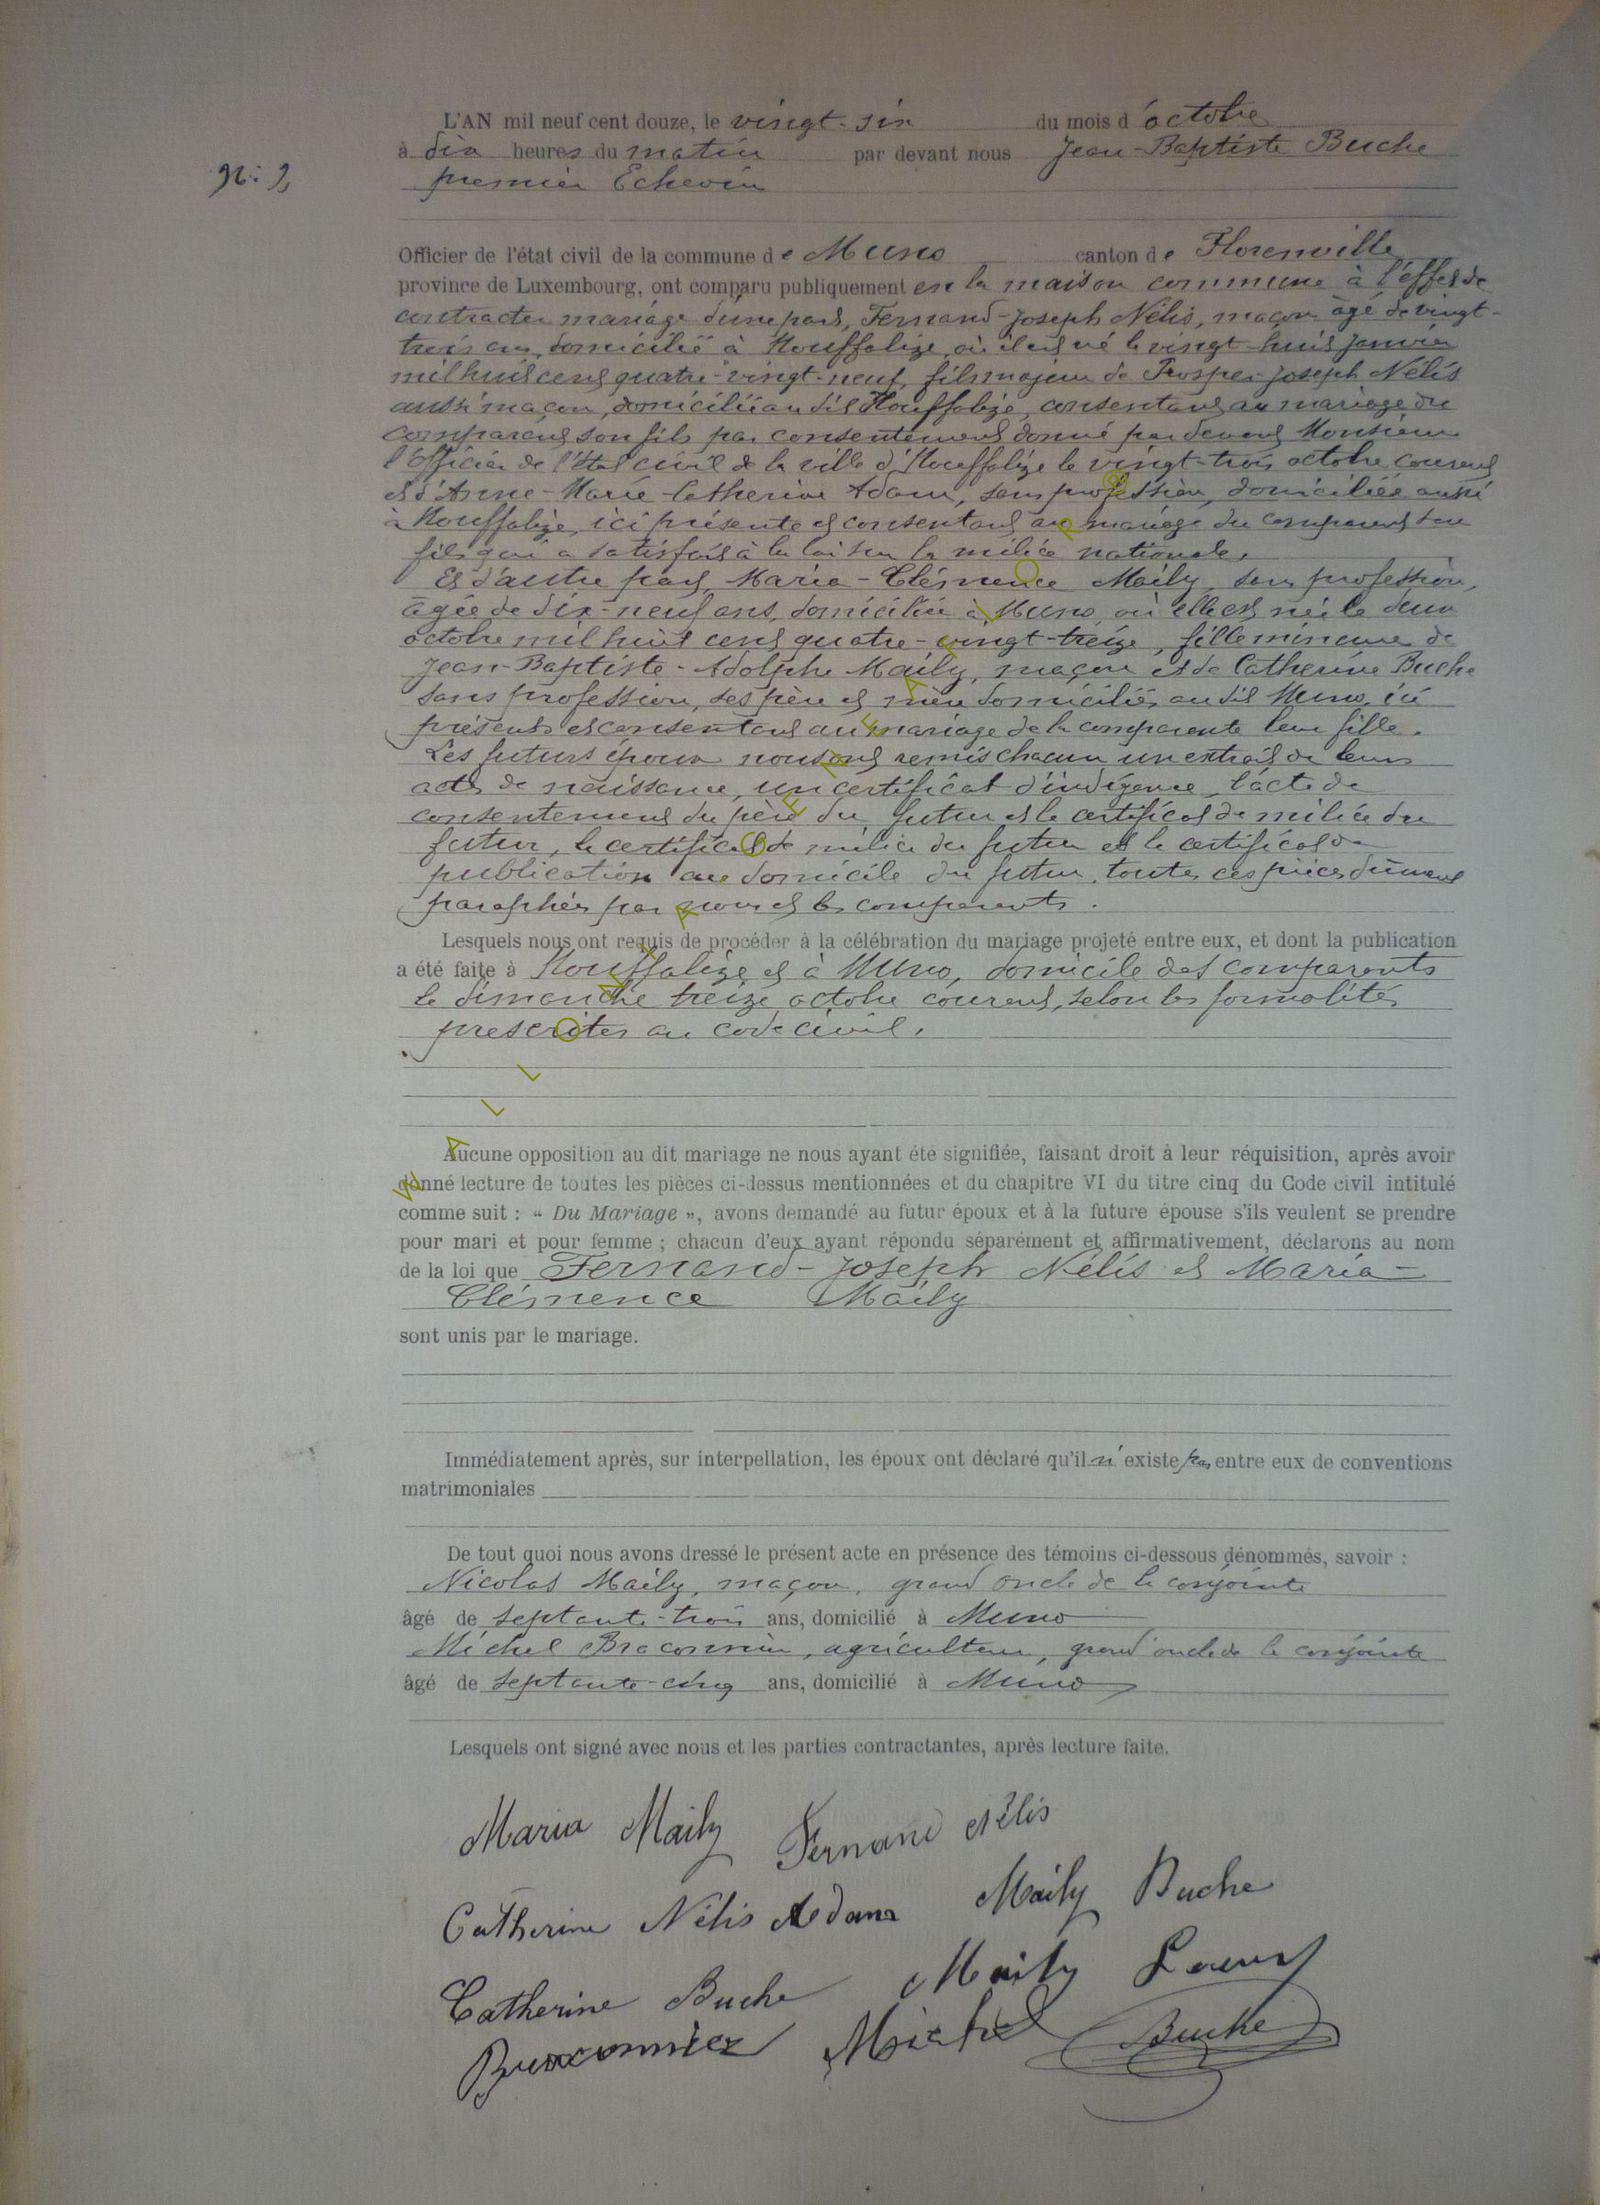 L'AN mil neuf cent douze, le vingt-six du mois d'octobre
à dix heures du matin par devant nous Jean-Baptiste Buche
premier Echevin
Officier de l'état civil de la commune de Muno canton de Florenville
province de Luxembourg, ont comparu publiquement en la maison commune à l'effet de
contracter mariage d'une part, Fernand-Joseph Nélis, maçon âgé de vingt-
trois ans, domicilié à Houffalize, où il est né le vingt-huit janvier
mil huit cent quatre-vingt-neuf, fils majeur de Prosper-Joseph Nélis
aussi maçon, domicilié au dit Houffalize, consentant au mariage du
comparant son fils par consentement donné par devant Monsieur
l'officier de l'Etat civil de la ville d'Houffalize le vingt-trois octobre courant
et d'Anne-Marie-Catherine Adam, sans profession, domiciliée aussi
à Houffalize, ici présente et consentant au mariage du comparant son
fils qui a satisfait à la loi sur la milice nationale.
Et d'autre part, Maria-Clémence Maily, sans profession,
âgée de dix-neuf ans, domiciliée à Muno, où elle est née le deux
octobre mil huit cent quatre-vingt-treize, fille mineure de
Jean-Baptiste-Adolphe Maily, maçon et de Catherine Buche
sans profession, ses père et mère domiciliés au dit Muno, ici
présents et consentant au mariage de la comparante leur fille.
Les futurs époux nous ont remis chacun un extrait de leur
acte de naissance, un certificat d'indigence, l'acte de
consentement du père du futur et le certificat de milice du
futur, le certificat de milice du futur et le certificat de
publication au domicile du futur, toutes ces pièces dûment
paraphées par nous et les comparants.
Lesquels nous ont requis de procéder à la célébration du mariage projeté entre eux, et dont la publication
a été faite à Houffalize et à Muno, domicile des comparants
le dimanche treize octobre courant, selon les formalités
prescrites au code civil.
Aucune opposition au dit mariage ne nous ayant été signifiée, faisant droit à leur réquisition, après avoir
donné lecture de toutes les pièces ci-dessus mentionnées et du chapitre VI du titre cinq du Code civil intitulé
comme suit : « Du Mariage », avons demandé au futur époux et à la future épouse s'ils veulent se prendre
pour mari et pour femme ; chacun d'eux ayant répondu séparément et affirmativement, déclarons au nom
de la loi que Fernand-Joseph Nélis et Maria-
Clémence Maily
sont unis par le mariage.
Immédiatement après, sur interpellation, les époux ont déclaré qu'il n'existe pas entre eux de conventions
matrimoniales
De tout quoi nous avons dressé le présent acte en présence des témoins ci-dessous dénommés, savoir :
Nicolas Maily, maçon, grand oncle de la conjointe
âgé de septante-trois ans, domicilié à Muno
Michel Braconnier, agriculteur, grand'oncle de la conjointe
âgé de septante-cinq ans, domicilié à Muno
Lesquels ont signé avec nous et les parties contractantes, après lecture faite.
Maria Maily Fernand Nélis
Catherine Nélis Adam Maily Buche
Catherine Buche Maily
Braconnier Michel Buche